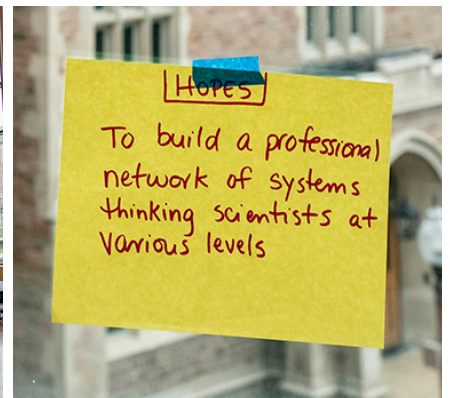 HOPES
To build a professional
network of systems
thinking scientists at
various levels